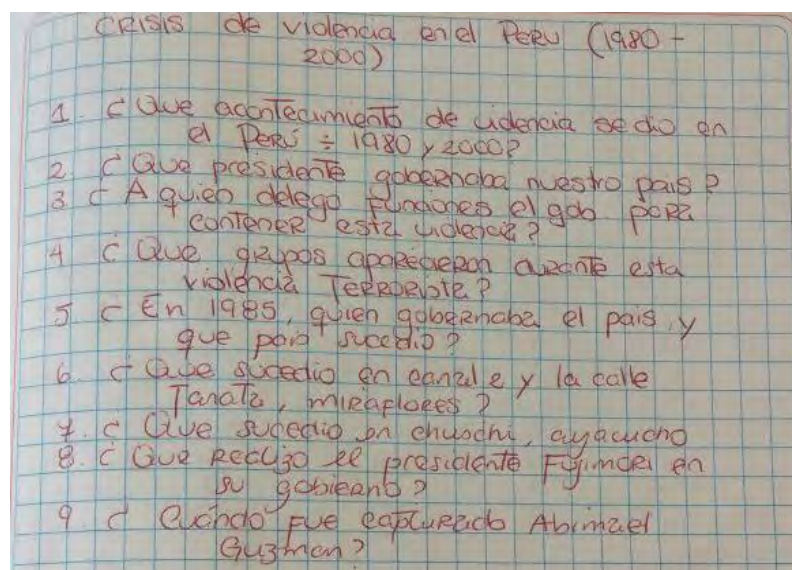 CRISIS de violencia en el PERU (1980 -
2000)
1. ¿ Que acontecimiento de violencia se dio en
el PERÚ ÷ 1980 y 2000?
2. ¿ Que presidente gobernaba nuestro pais ?
3 ¿ A quien delego funciones el gob para
contener esta violencia ?
4 ¿ Que grupos aparecieron durante esta
violencia Terrorista ?
5 ¿ En 1985, quien gobernaba el pais, y
que paso sucedio ?
6. ¿ Que sucedio en canal 2 y la calle
Tarata, miraflores ?
7. ¿ Que sucedio en chuschi, ayacucho
8. ¿ Que Redujo el presidente Fujimori en
su gobierno ?
9 ¿ Cuándo fue capturado Abimael
Guzman ?